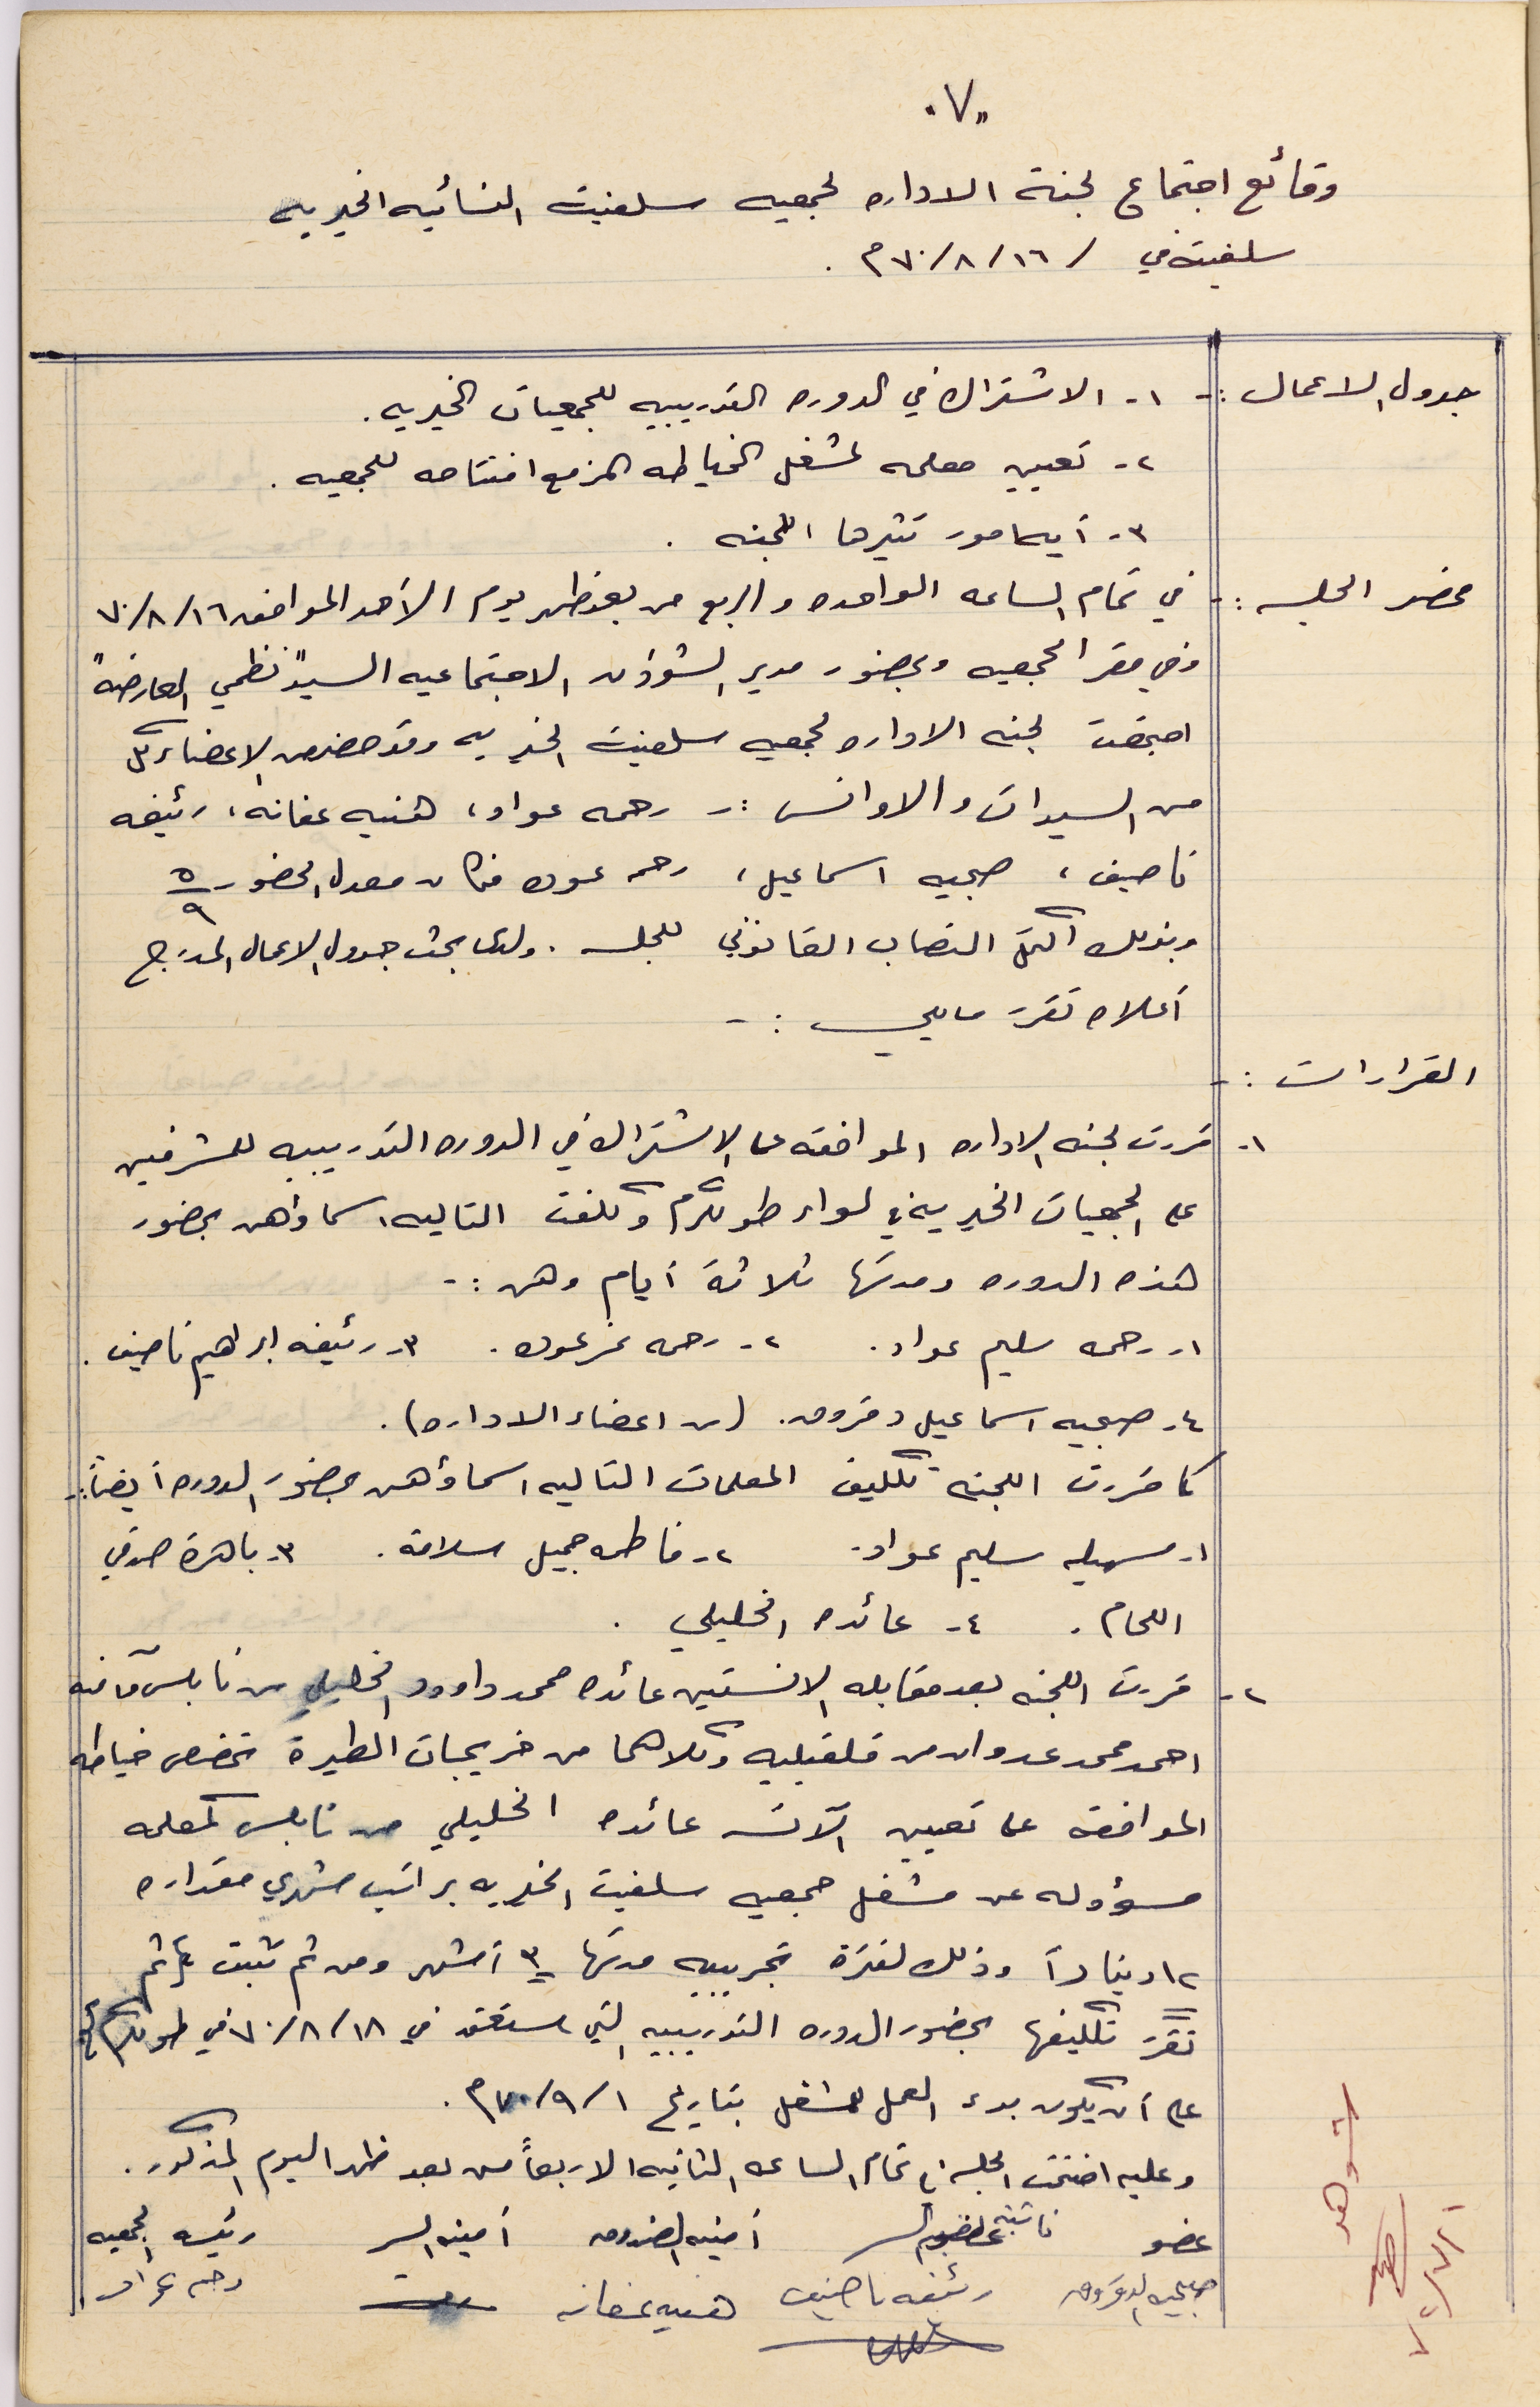 "٧"
وقائع اجتماع لجنة الاداره لجمعيه سلفيت النسائيه الخيريه
سلفيت في / ١٦/٨/٧٠م .
جدول الاعمال :- ١- الاشتراك في الدوره التدريبيه للجمعيات الخيريه.
٢- تعيين معلمه لمشغل الخياطه المزمع افتتاحه للجمعيه .
٣- أيه امور تثيرها اللجنه .
محضر الجلسه :- في تمام الساعه الواحده والربع من بعد ظهر يوم الأحد الموافق ١٦/٨/٧٠
وفي مقر الجمعيه وبحضور مدير الشؤون الاجتماعيه السيد "نظمي العارضه"
اجتمعت لجنه الاداره لجمعيه سلفيت الخيريه وقد حضر من الاعضاء كل
من السيدات والاوانس :- رحمه عواد، هنيه عفانه، رئيفه
ناصيف، صبحيه اسماعيل، رحمه عوده فكان معدل الحضور ٥/٩
وبذلك اكتمل النصاب القانوني للجلسه . ولدى بحث جدول الاعمال المدرج
أعلاه تقرر مايلي :-
القرارات :-
١- قررت لجنه الاداره الموافقه على الاشتراك في الدوره التدريبيه للمشرفين
على الجمعيات الخيريه في لواء طولكرم وكلفت التاليه اسماؤهن بحضور
هذه الدوره ومدتها ثلاثة أيام وهن :-
١- رحمه سليم عواد. ٢- رحمه عوده. ٣- رئيفه ابراهيم ناصيف.
٤- صبحيه اسماعيل دقروق. (من اعضاء الاداره).
كما قررت اللجنه تكليف المعلمات التاليه اسماؤهن بحضور الدوره أيضاً:-
١- سهيله سليم عواد. ٢- فاطمه جميل سلامة. ٣- باهرة صدقي
اللحام. ٤- عائده الخليلي .
٢- قررت اللجنه بعد مقابله الانستين عائده محمد داوود الخليلي من نابلس وآمنه
احمد محمد عدوان من قلقيليه وكلاهما من خريجات الطيرة تخصص خياطه
الموافقه على تعيين الآنسه عائده الخليلي من نابلس كمعلمه
مسؤوله عن مشغل جمعيه سلفيت الخيريه براتب شهري مقداره
١٢ ديناراً وذلك لفترة تجريبيه مدتها ٣ أشهر ومن ثم تثبت ثم
تقرر تكليفها بحضور الدوره التدريبيه التي ستعقد في ١٨/٨/٧٠ في طولكرم
على أن يكون بدء العمل للمشغل بتاريخ ١/٩/٧٠م.
وعليه اختتمت الجلسه في تمام الساعه الثانيه الا ربعاً من بعد ظهر اليوم المذكور.
عضو نائبة أمينة السر أمينه الصندوق أمينه السر رئيسه الجمعيه
صبحيه الدقروق رئيفه ناصيف هنيه عفانه رحمه عواد
شوهد